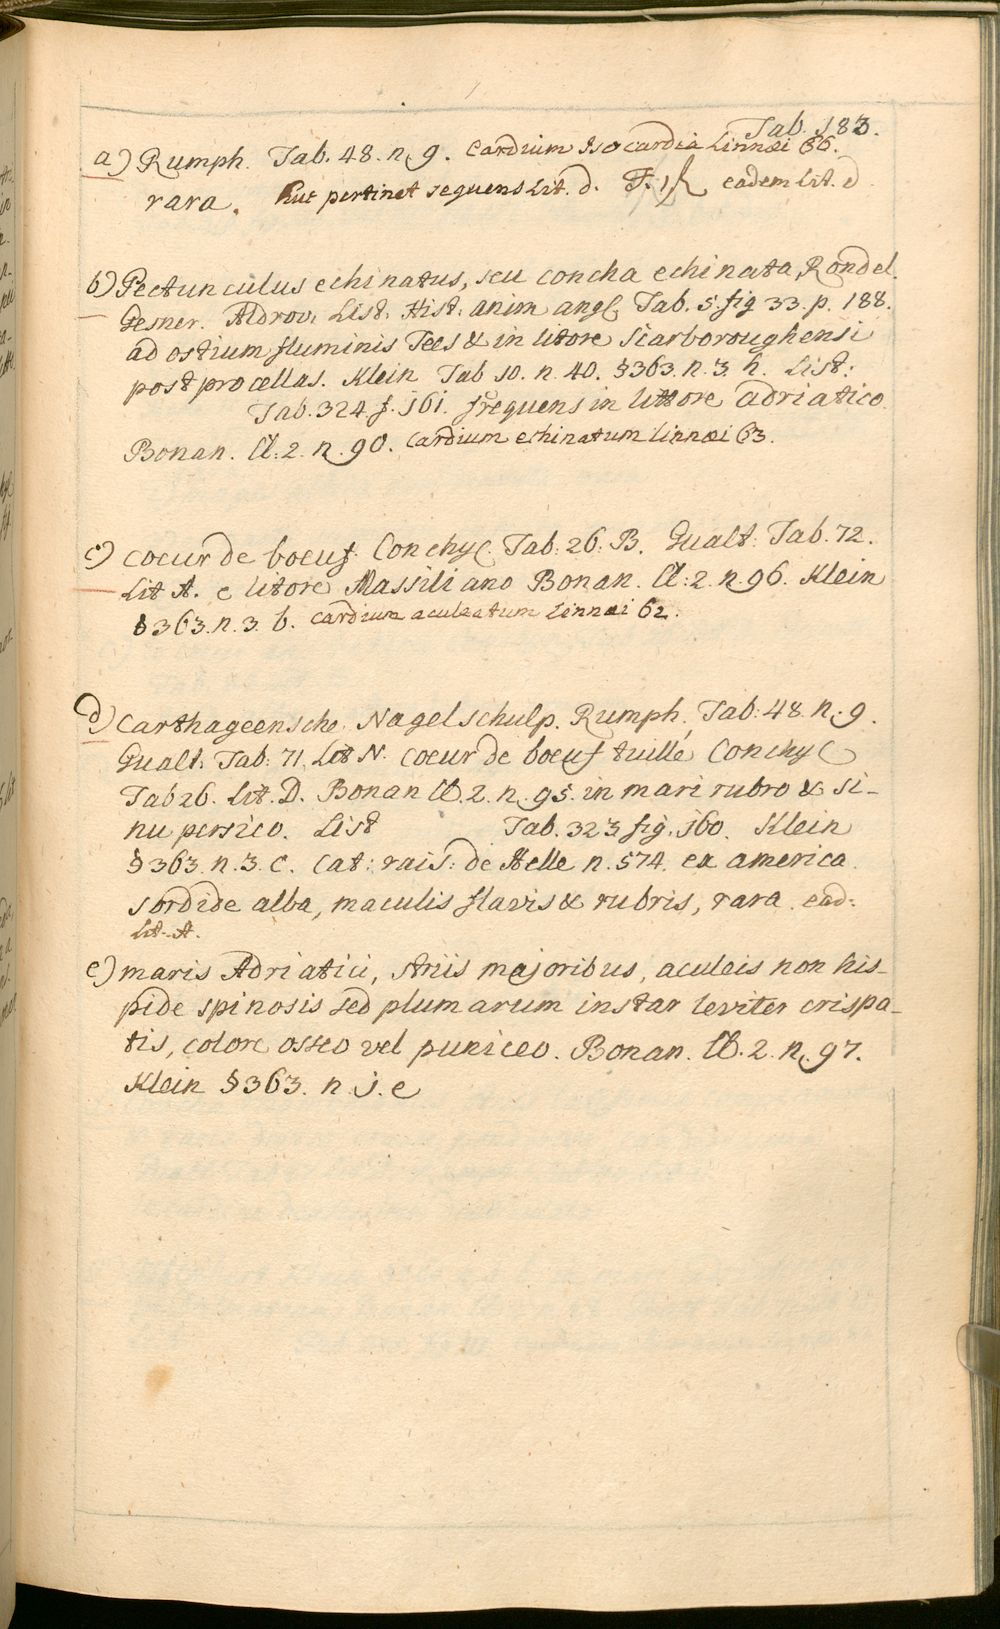 Tab. 183.
a) Rumph. Tab. 48. n. 9. Cardium Isocardia Linnæi 66.
rara. huc pertinet sequens Lit. d. eadem Lit. d
b) Pectunculus echinatus, seu concha echinata, Rondel.
Gesner. Aldrov. List. Hist. anim angl. Tab. 5. fig 33. p. 188.
ad ostium fluminis Tees & in litore Scarboroughensi
post procellas. Klein Tab 10. n. 40. §363. n. 3. h. List:
Tab. 324 f. 161. frequens in littore adriatico
Bonan. Cl: 2. n. 90. Cardium echinatum Linnæi 63.
c) coeur de boeuf. Conchyl. Tab: 26: B. Gualt: Tab. 72.
Lit A. e litore Massiliano Bonan. Cl: 2. n. 96. Klein
§363. n. 3. b. Cardium aculeatum Linnæi 62.
d) Carthageensche Nagelschulp. Rumph, Tab: 48. n. 9.
Gualt. Tab: 71, Lit N. coeur de boeuf tuillé Conchyl
Tab 26. Lit. D. Bonan Cl. 2. n. 95. in mari rubro & si-
nu persico. List Tab. 323 fig. 160. Klein
§363. n. 3. c. Cat: rais: de Helle n. 574. ex america
sordide alba, maculis flavis & rubris, rara. ead:
Lit. A.
e) maris Adriatici, striis majoribus, aculeis non his-
pide spinosis sed plumarum instar leviter crispa-
tis, colore osseo vel puniceo. Bonan. Cl. 2. n. 97.
Klein §363. n. j. e